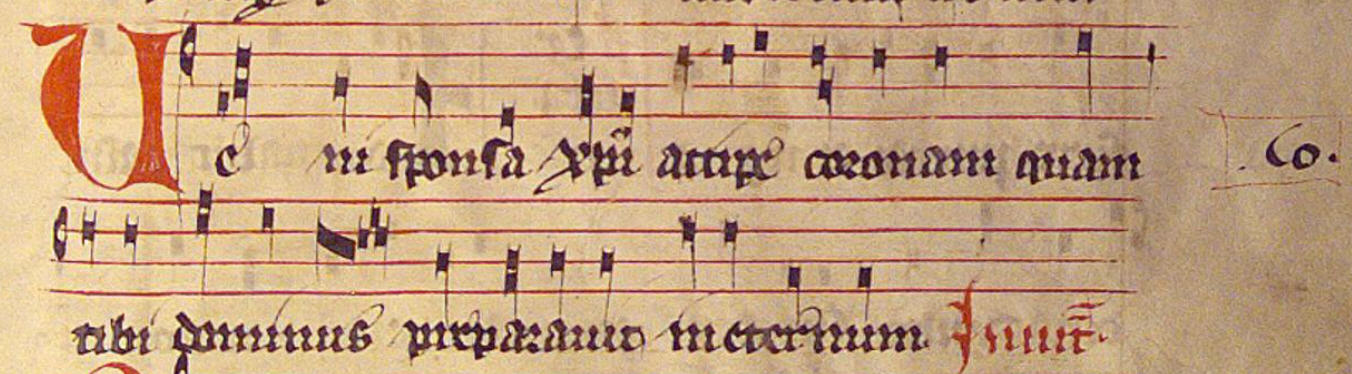 Ve ni sponsa xpi accipe coronam quam
Co.
tibi dominus preparauit in eternum Inuit.